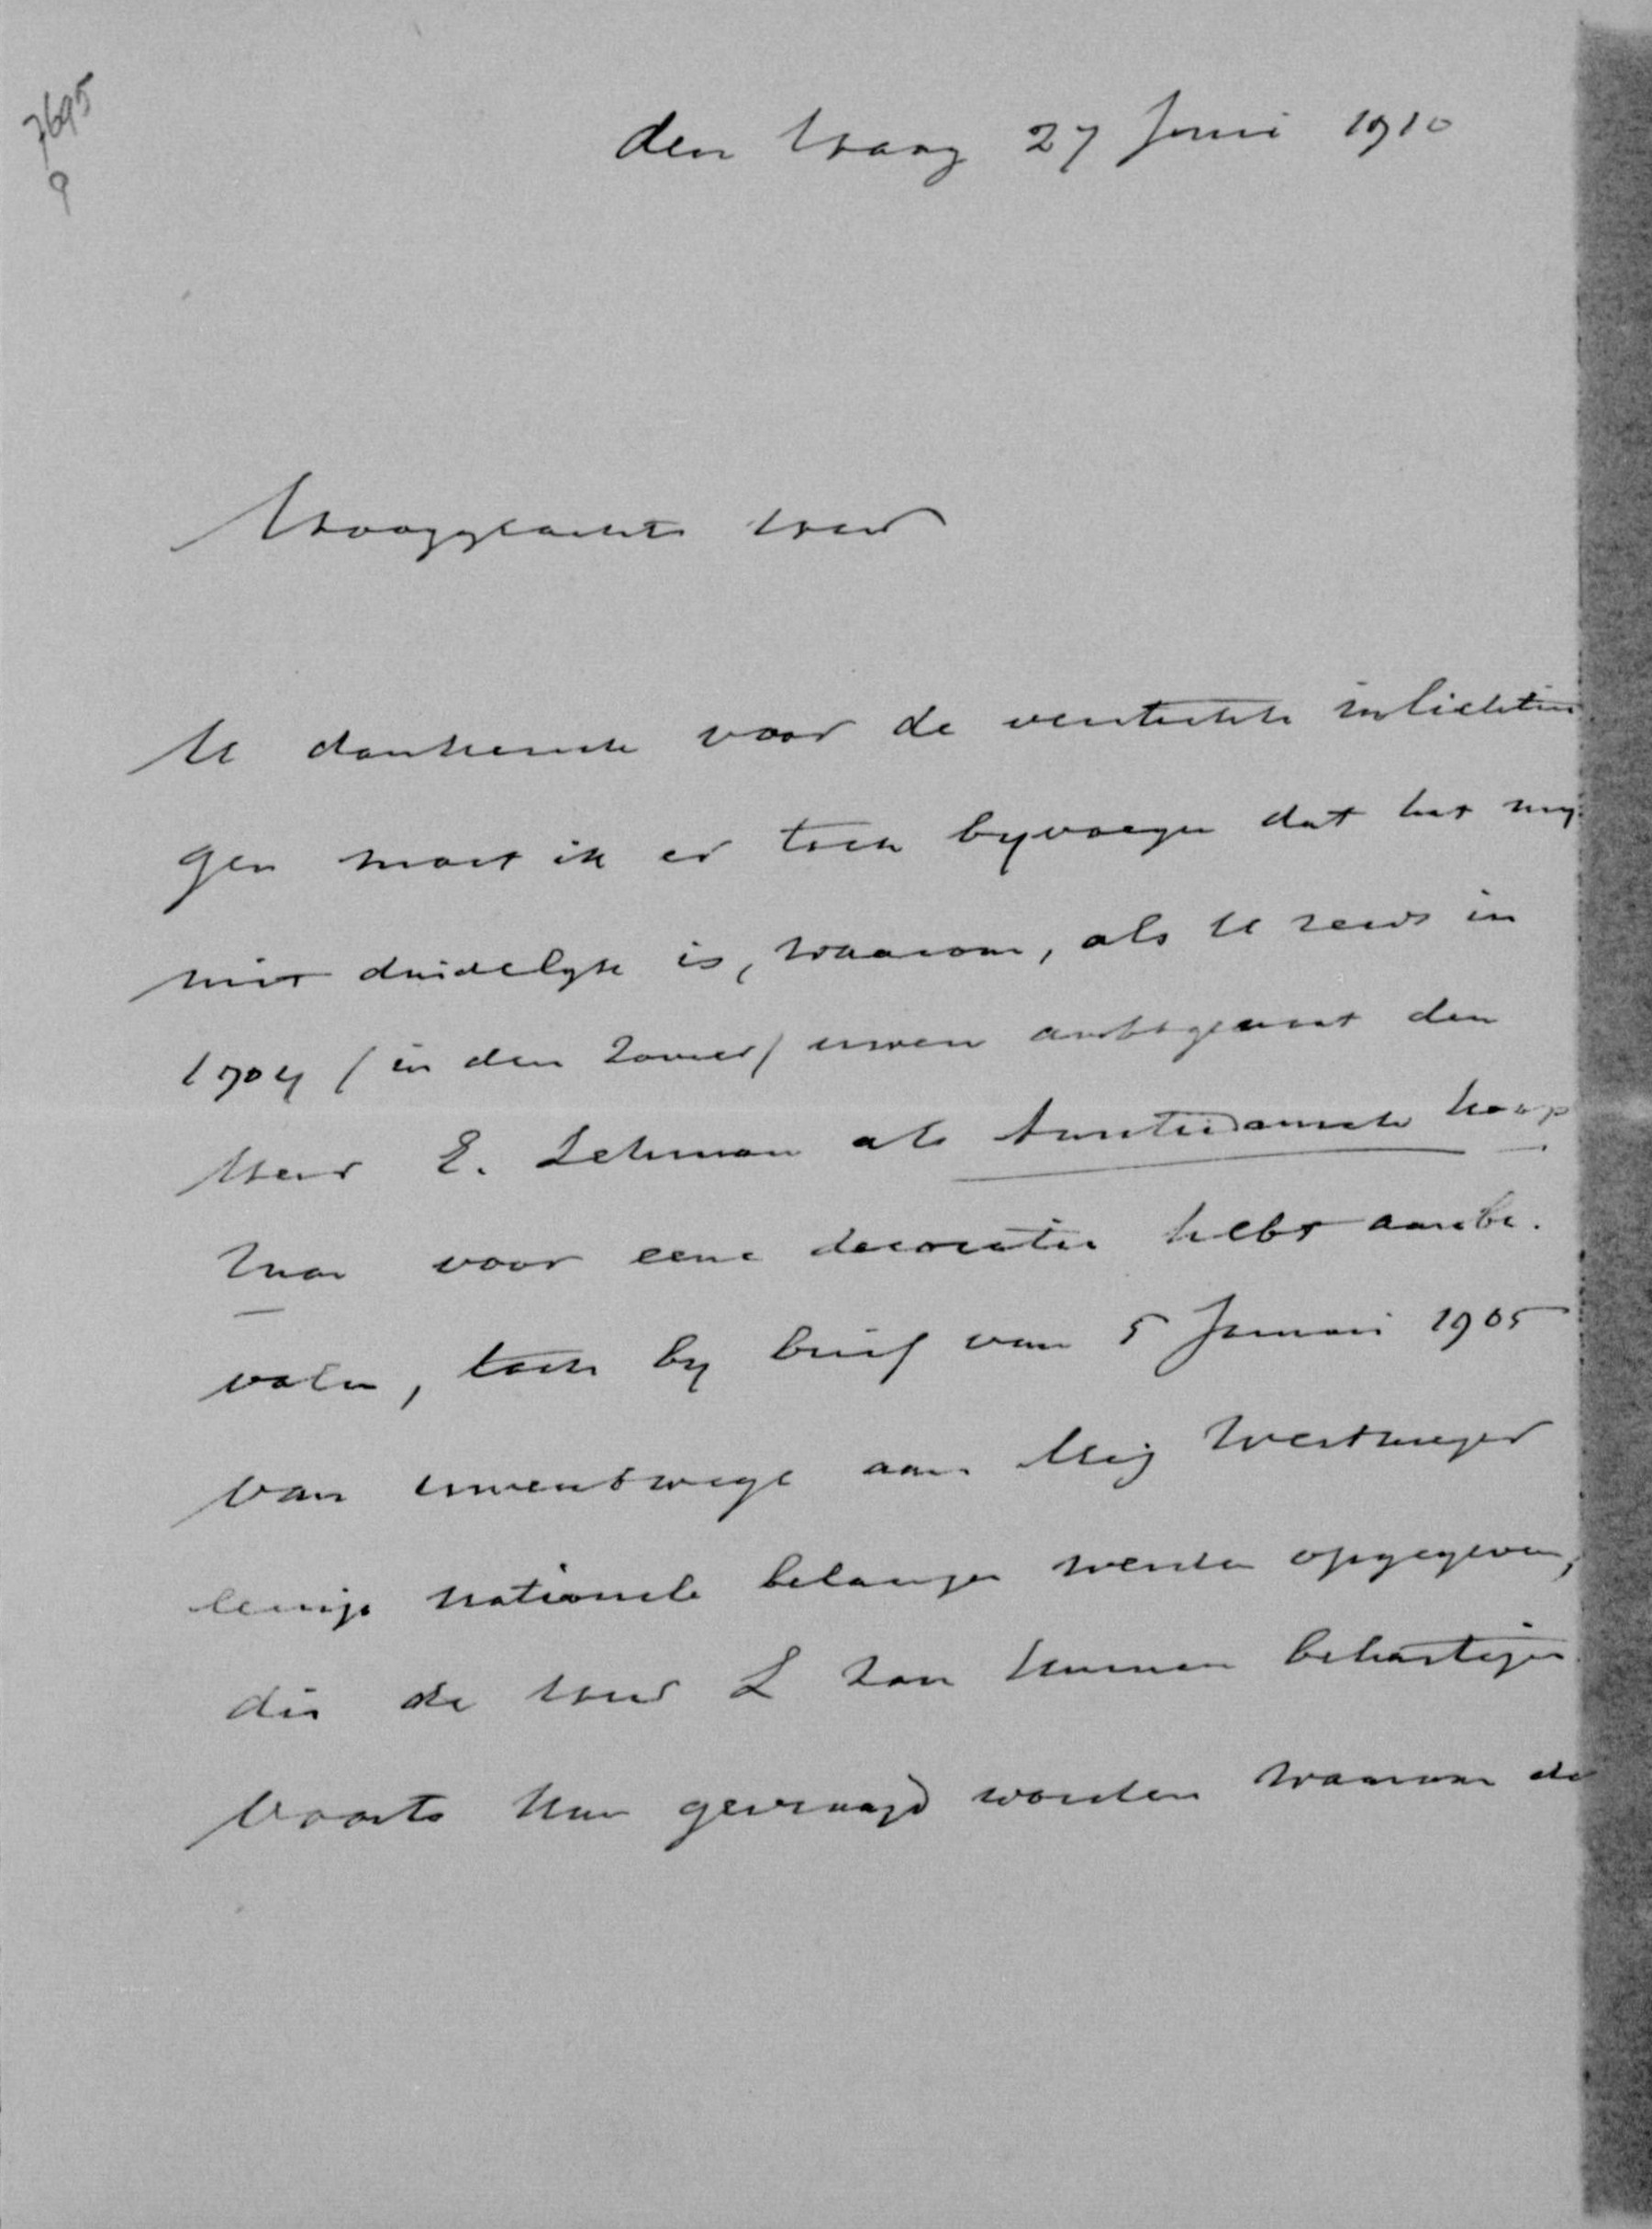 7695
9
den Haag 27 Juni 1910
Hooggeachte Heer
U dankende voor de verstrekte inlichtin
gen moet ik er toch byvoegen dat het my
niet duidelyk is, waarom, als U reeds in
1904 (in den zomer) uwen ambtgenoot den
Heer E. Lehman als Amsterdamsch koop
man voor eene decoratie hebt aanbe-
volen, toch by brief van 5 Januari 1905
van uwentwege aan Mej Westmeijer
eenige nationale belangen werden opgegeven,
die de Heer L zou kunnen behartigen.
Voorts kan gevraagd worden waarom de